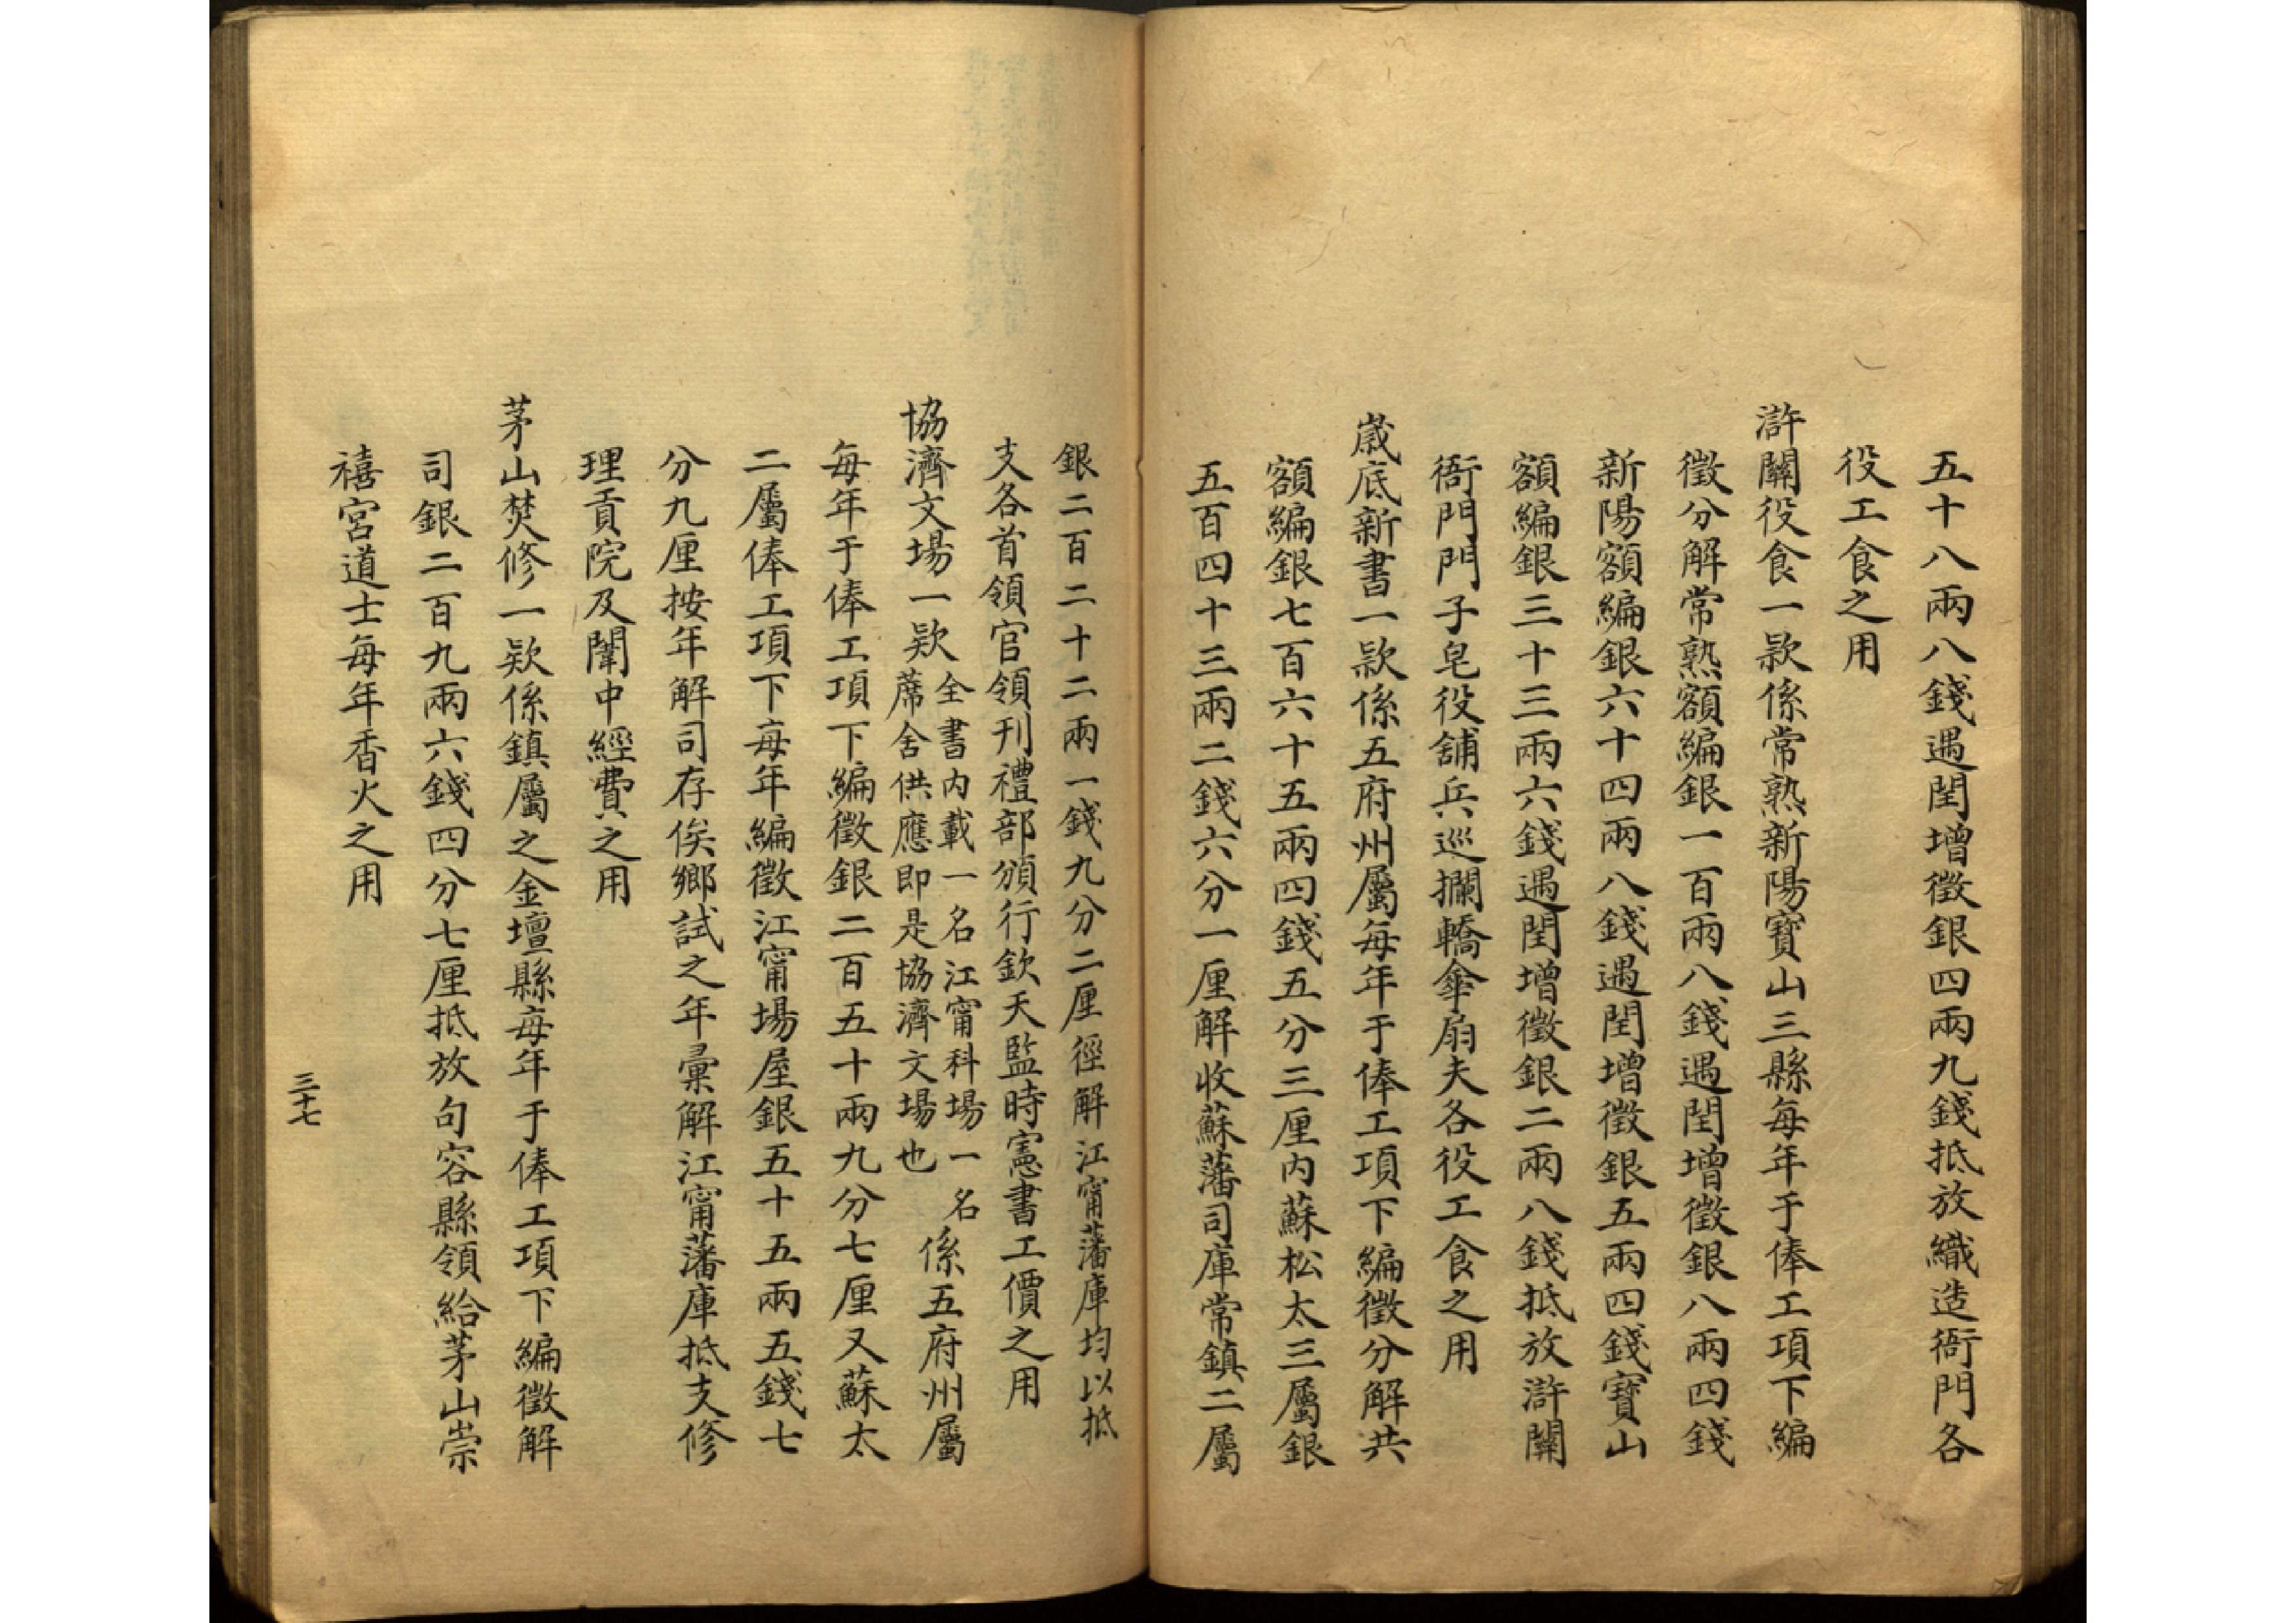 五十八兩八錢遇閏增徵銀四兩九錢抵放織造衙門各
役工食之用
滸關役食一款係常熟新陽寶山三縣每年于俸工項下編
徵分解常熟額編銀一百兩八錢遇閏增徵銀八兩四錢
新陽額編銀六十四兩八錢遇閏增徵銀五兩四錢寶山
額編銀三十三兩六錢遇閏增徵銀二兩八錢抵放滸關
衙門門子皂役舖兵巡攔轎傘扇夫各役工食之用
歲底新書一款係五府州屬每年于俸工項下編徵分解共
額編銀七百六十五兩四錢五分三厘內蘇松太三屬銀
五百四十三兩二錢六分一厘解收蘇藩司庫常鎮二屬
銀二百二十二兩一錢九分二厘徑解江甯藩庫均以抵
支各首領官領刊禮部頒行欽天監時憲書工價之用
協濟文場一欵全書內載一名江甯科場一名
蓆舍供應即是協濟文場也
係五府州屬
每年于俸工項下編徵銀二百五十兩九分七厘又蘇太
二屬俸工項下每年編徵江甯場屋銀五十五兩五錢七
分九厘按年解司存俟鄉試之年彙解江甯藩庫抵支修
理貢院及闈中經費之用
茅山焚修一欵係鎮屬之金壇縣每年于俸工項下編徵解
司銀二百九兩六錢四分七厘抵放句容縣領給茅山崇
禧宮道士每年香火之用
三十七